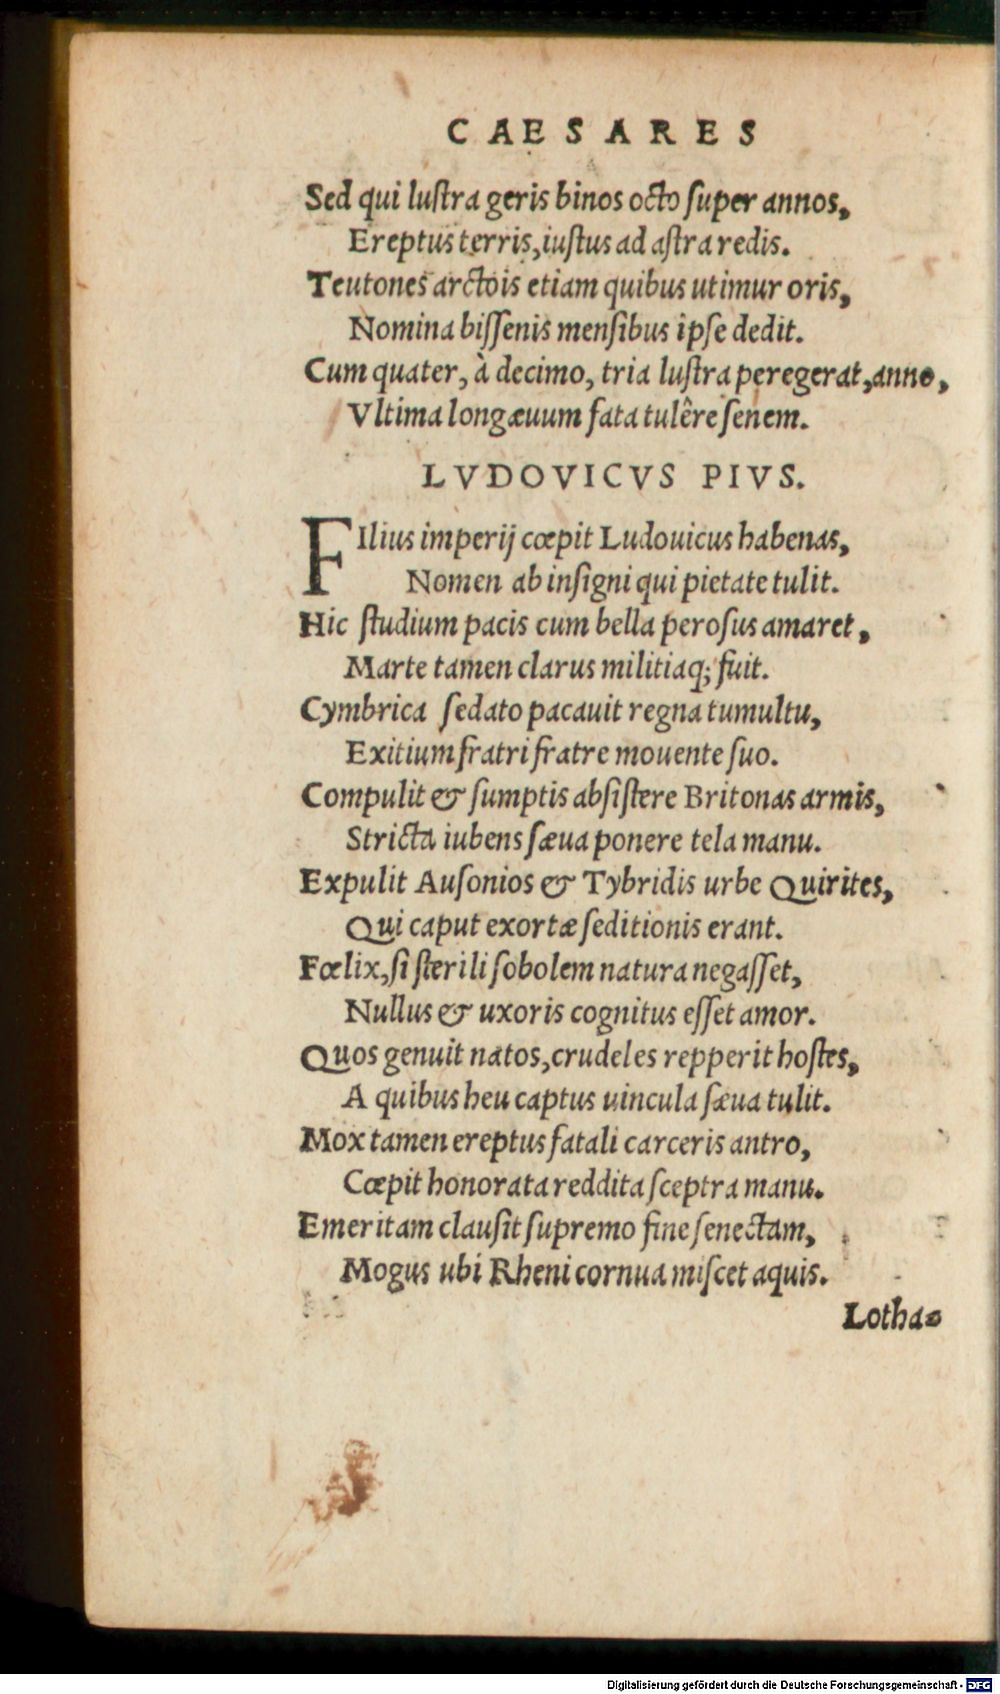 CAESARES
Sed qui luſtra geris binos octo ſuper annos,
Ereptus terris, iuſtus ad aſtra redis.
Teutones arctois etiam quibus utimur oris,
Nomina biſſenis menſibus ipſe dedit.
Cum quater, à decimo, tria luſtra peregerat, anno,
Vltima longæuum fata tulêre ſenem.
LVDOVICVS PIVS.
FIlius imperij cœpit Ludouicus habenas,
Nomen ab inſigni qui pietate tulit.
Hic ſtudium pacis cum bella peroſus amaret,
Marte tamen clarus militiaq; fuit.
Cymbrica ſedato pacauit regna tumultu,
Exitium fratri fratre mouente ſuo.
Compulit & ſumptis abſiſtere Britonas armis,
Stricta iubens ſæua ponere tela manu.
Expulit Auſonios & Tybridis urbe Quirites,
Qui caput exortæ ſeditionis erant.
Fœlix, ſi ſterili ſobolem natura negaſſet,
Nullus & uxoris cognitus eſſet amor.
Quos genuit natos, crudeles repperit hoſtes,
A quibus heu captus uincula ſæua tulit.
Mox tamen ereptus fatali carceris antro,
Cœpit honorata reddita ſceptra manu.
Emeritam clauſit ſupremo fine ſenectam,
Mogus ubi Rheni cornua miſcet aquis.
Lotha-
Digitalisierung gefördert durch die Deutsche Forschungsgemeinschaft - DFG